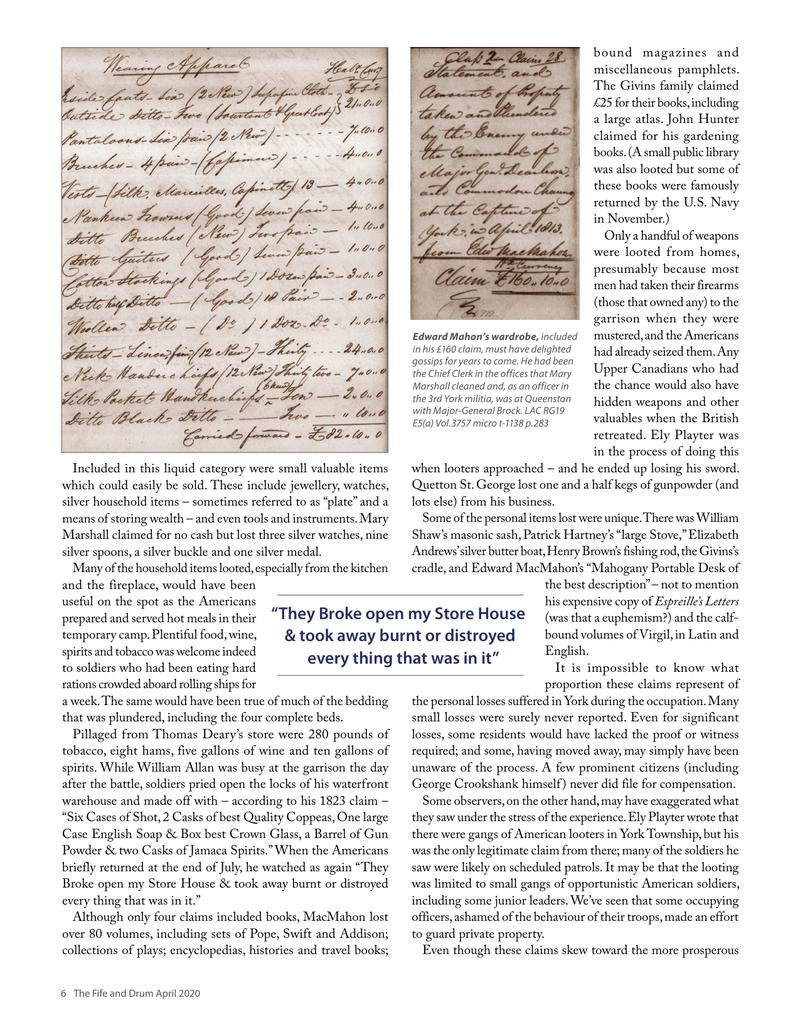 Wearing Apparel
Hal: Cur'y
Inside Coats - Six (2 New) Superfin Cloth -
Outside Ditto - Two (Sourtout & Great Coat) 21..0..0
Pantaloons - Six pair (2 New) - - - - - 7..10..0
Breeches - 4 pair - - - - - 4..0..0
Vests - (Silk, Marseilles, 13 — 4..0..0
Nankeen Trowsers (Good) Seven pair — 4..0..0
Ditto Breeches (New) Two pair — 1..10..0
Ditto Gaiters (Good) Seven pair — 1..0..0
Cotton Stockings (Good) 1 Dozen pair — 3..0..0
Ditto half Ditto — (Good) 18 Pair — 2..0..0
Woollen Ditto — (Do) 1 Doz - Do — 1..10..0
Shirts — Linen fine (12 New) — Thirty - - - 24..0..0
Neck Handkerchiefs (12 New) Thirty two — 7..0..0
Silk Pocket Handkerchiefs — Ten — 2..0..0
Ditto Black Ditto — Two — 10..0
Carried forward — £82..10..0
Class 2 Claim 28
Statement, and
Amount of Property
taken and Plundered
by the Enemy under
the Command of
Major Gen. Dearborn,
and Commodore
at the Capture of
York, in April 1813.
from Edw MacMahon
Claim £160..10..0
Edward Mahon's wardrobe, included
in his £160 claim, must have delighted
gossips for years to come. He had been
the Chief Clerk in the offices that Mary
Marshall cleaned and, as an officer in
the 3rd York militia, was at Queenston
with Major-General Brock. LAC RG19
E5(a) Vol.3757 micro t-1138 p.283
Included in this liquid category were small valuable items
which could easily be sold. These include jewellery, watches,
silver household items – sometimes referred to as "plate" and a
means of storing wealth – and even tools and instruments. Mary
Marshall claimed for no cash but lost three silver watches, nine
silver spoons, a silver buckle and one silver medal.
Many of the household items looted, especially from the kitchen
and the fireplace, would have been
useful on the spot as the Americans
prepared and served hot meals in their
temporary camp. Plentiful food, wine,
spirits and tobacco was welcome indeed
to soldiers who had been eating hard
rations crowded aboard rolling ships for
a week. The same would have been true of much of the bedding
that was plundered, including the four complete beds.
Pillaged from Thomas Deary's store were 280 pounds of
tobacco, eight hams, five gallons of wine and ten gallons of
spirits. While William Allan was busy at the garrison the day
after the battle, soldiers pried open the locks of his waterfront
warehouse and made off with – according to his 1823 claim –
"Six Cases of Shot, 2 Casks of best Quality Coppeas, One large
Case English Soap & Box best Crown Glass, a Barrel of Gun
Powder & two Casks of Jamaca Spirits." When the Americans
briefly returned at the end of July, he watched as again "They
Broke open my Store House & took away burnt or distroyed
every thing that was in it."
Although only four claims included books, MacMahon lost
over 80 volumes, including sets of Pope, Swift and Addison;
collections of plays; encyclopedias, histories and travel books;
"They Broke open my Store House
& took away burnt or distroyed
every thing that was in it"
bound magazines and
miscellaneous pamphlets.
The Givins family claimed
£25 for their books, including
a large atlas. John Hunter
claimed for his gardening
books. (A small public library
was also looted but some of
these books were famously
returned by the U.S. Navy
in November.)
Only a handful of weapons
were looted from homes,
presumably because most
men had taken their firearms
(those that owned any) to the
garrison when they were
mustered, and the Americans
had already seized them. Any
Upper Canadians who had
the chance would also have
hidden weapons and other
valuables when the British
retreated. Ely Playter was
in the process of doing this
when looters approached – and he ended up losing his sword.
Quetton St. George lost one and a half kegs of gunpowder (and
lots else) from his business.
Some of the personal items lost were unique. There was William
Shaw's masonic sash, Patrick Hartney's "large Stove," Elizabeth
Andrews' silver butter boat, Henry Brown's fishing rod, the Givins's
cradle, and Edward MacMahon's "Mahogany Portable Desk of
the best description" – not to mention
his expensive copy of Espreille's Letters
(was that a euphemism?) and the calf-
bound volumes of Virgil, in Latin and
English.
It is impossible to know what
proportion these claims represent of
the personal losses suffered in York during the occupation. Many
small losses were surely never reported. Even for significant
losses, some residents would have lacked the proof or witness
required; and some, having moved away, may simply have been
unaware of the process. A few prominent citizens (including
George Crookshank himself) never did file for compensation.
Some observers, on the other hand, may have exaggerated what
they saw under the stress of the experience. Ely Playter wrote that
there were gangs of American looters in York Township, but his
was the only legitimate claim from there; many of the soldiers he
saw were likely on scheduled patrols. It may be that the looting
was limited to small gangs of opportunistic American soldiers,
including some junior leaders. We've seen that some occupying
officers, ashamed of the behaviour of their troops, made an effort
to guard private property.
Even though these claims skew toward the more prosperous
6 The Fife and Drum April 2020